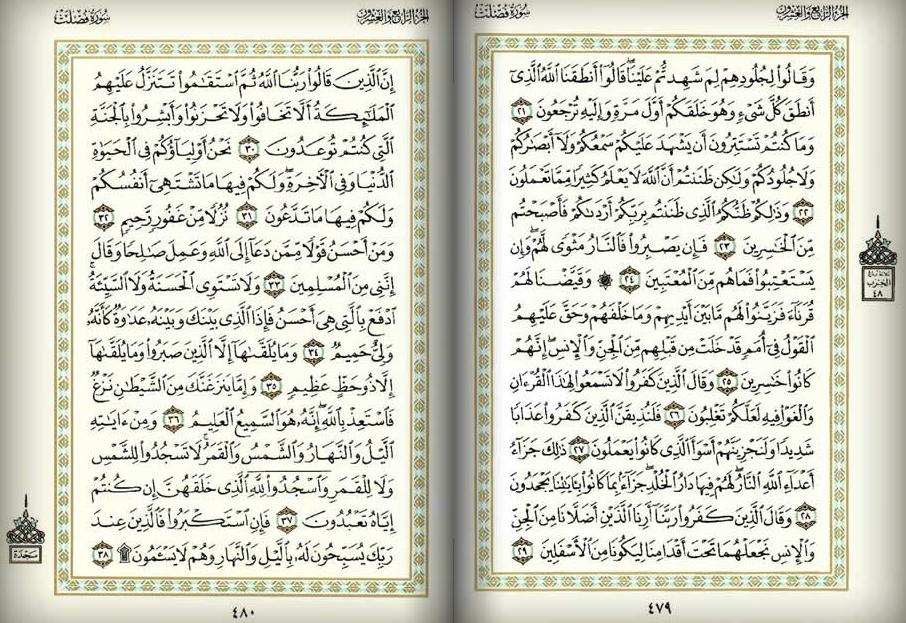 الجزء الرابع والعشرون
سورة فصلت
وَقَالُوا۟ لِجُلُودِهِمْ لِمَ شَهِدتُّمْ عَلَيْنَا ۖ قَالُوٓا۟ أَنطَقَنَا ٱللَّهُ ٱلَّذِىٓ
أَنطَقَ كُلَّ شَىْءٍ وَهُوَ خَلَقَكُمْ أَوَّلَ مَرَّةٍ وَإِلَيْهِ تُرْجَعُونَ ٢١
وَمَا كُنتُمْ تَسْتَتِرُونَ أَن يَشْهَدَ عَلَيْكُمْ سَمْعُكُمْ وَلَآ أَبْصَٰرُكُمْ
وَلَا جُلُودُكُمْ وَلَٰكِن ظَنَنتُمْ أَنَّ ٱللَّهَ لَا يَعْلَمُ كَثِيرًا مِّمَّا تَعْمَلُونَ
٢٢ وَذَٰلِكُمْ ظَنُّكُمُ ٱلَّذِى ظَنَنتُم بِرَبِّكُمْ أَرْدَىٰكُمْ فَأَصْبَحْتُم
مِّنَ ٱلْخَٰسِرِينَ ٢٣ فَإِن يَصْبِرُوا۟ فَٱلنَّارُ مَثْوًى لَّهُمْ ۖ وَإِن
يَسْتَعْتِبُوا۟ فَمَا هُم مِّنَ ٱلْمُعْتَبِينَ ٢٤ ۞ وَقَيَّضْنَا لَهُمْ
قُرَنَآءَ فَزَيَّنُوا۟ لَهُم مَّا بَيْنَ أَيْدِيهِمْ وَمَا خَلْفَهُمْ وَحَقَّ عَلَيْهِمُ
ٱلْقَوْلُ فِىٓ أُمَمٍ قَدْ خَلَتْ مِن قَبْلِهِم مِّنَ ٱلْجِنِّ وَٱلْإِنسِ ۖ إِنَّهُمْ
كَانُوا۟ خَٰسِرِينَ ٢٥ وَقَالَ ٱلَّذِينَ كَفَرُوا۟ لَا تَسْمَعُوا۟ لِهَٰذَا ٱلْقُرْءَانِ
وَٱلْغَوْا۟ فِيهِ لَعَلَّكُمْ تَغْلِبُونَ ٢٦ فَلَنُذِيقَنَّ ٱلَّذِينَ كَفَرُوا۟ عَذَابًا
شَدِيدًا وَلَنَجْزِيَنَّهُمْ أَسْوَأَ ٱلَّذِى كَانُوا۟ يَعْمَلُونَ ٢٧ ذَٰلِكَ جَزَآءُ
أَعْدَآءِ ٱللَّهِ ٱلنَّارُ ۖ لَهُمْ فِيهَا دَارُ ٱلْخُلْدِ ۖ جَزَآءًۢ بِمَا كَانُوا۟ بِـَٔايَٰتِنَا يَجْحَدُونَ
٢٨ وَقَالَ ٱلَّذِينَ كَفَرُوا۟ رَبَّنَآ أَرِنَا ٱلَّذَيْنِ أَضَلَّانَا مِنَ ٱلْجِنِّ
وَٱلْإِنسِ نَجْعَلْهُمَا تَحْتَ أَقْدَامِنَا لِيَكُونَا مِنَ ٱلْأَسْفَلِينَ ٢٩
٤٧٩
الحزب
٤٨
الجزء الرابع والعشرون
سورة فصلت
إِنَّ ٱلَّذِينَ قَالُوا۟ رَبُّنَا ٱللَّهُ ثُمَّ ٱسْتَقَٰمُوا۟ تَتَنَزَّلُ عَلَيْهِمُ
ٱلْمَلَٰٓئِكَةُ أَلَّا تَخَافُوا۟ وَلَا تَحْزَنُوا۟ وَأَبْشِرُوا۟ بِٱلْجَنَّةِ
ٱلَّتِى كُنتُمْ تُوعَدُونَ ٣٠ نَحْنُ أَوْلِيَآؤُكُمْ فِى ٱلْحَيَوٰةِ
ٱلدُّنْيَا وَفِى ٱلْـَٔاخِرَةِ ۖ وَلَكُمْ فِيهَا مَا تَشْتَهِىٓ أَنفُسُكُمْ
وَلَكُمْ فِيهَا مَا تَدَّعُونَ ٣١ نُزُلًا مِّنْ غَفُورٍ رَّحِيمٍ ٣٢
وَمَنْ أَحْسَنُ قَوْلًا مِّمَّن دَعَآ إِلَى ٱللَّهِ وَعَمِلَ صَٰلِحًا وَقَالَ
إِنَّنِى مِنَ ٱلْمُسْلِمِينَ ٣٣ وَلَا تَسْتَوِى ٱلْحَسَنَةُ وَلَا ٱلسَّيِّئَةُ ۚ
ٱدْفَعْ بِٱلَّتِى هِىَ أَحْسَنُ فَإِذَا ٱلَّذِى بَيْنَكَ وَبَيْنَهُۥ عَدَٰوَةٌ كَأَنَّهُۥ
وَلِىٌّ حَمِيمٌ ٣٤ وَمَا يُلَقَّىٰهَآ إِلَّا ٱلَّذِينَ صَبَرُوا۟ وَمَا يُلَقَّىٰهَآ
إِلَّا ذُو حَظٍّ عَظِيمٍ ٣٥ وَإِمَّا يَنزَغَنَّكَ مِنَ ٱلشَّيْطَٰنِ نَزْغٌ
فَٱسْتَعِذْ بِٱللَّهِ ۖ إِنَّهُۥ هُوَ ٱلسَّمِيعُ ٱلْعَلِيمُ ٣٦ وَمِنْ ءَايَٰتِهِ
ٱلَّيْلُ وَٱلنَّهَارُ وَٱلشَّمْسُ وَٱلْقَمَرُ ۚ لَا تَسْجُدُوا۟ لِلشَّمْسِ
وَلَا لِلْقَمَرِ وَٱسْجُدُوا۟ لِلَّهِ ٱلَّذِى خَلَقَهُنَّ إِن كُنتُمْ
إِيَّاهُ تَعْبُدُونَ ٣٧ فَإِنِ ٱسْتَكْبَرُوا۟ فَٱلَّذِينَ عِندَ
رَبِّكَ يُسَبِّحُونَ لَهُۥ بِٱلَّيْلِ وَٱلنَّهَارِ وَهُمْ لَا يَسْـَٔمُونَ ۩ ٣٨
سجدة
٤٨٠